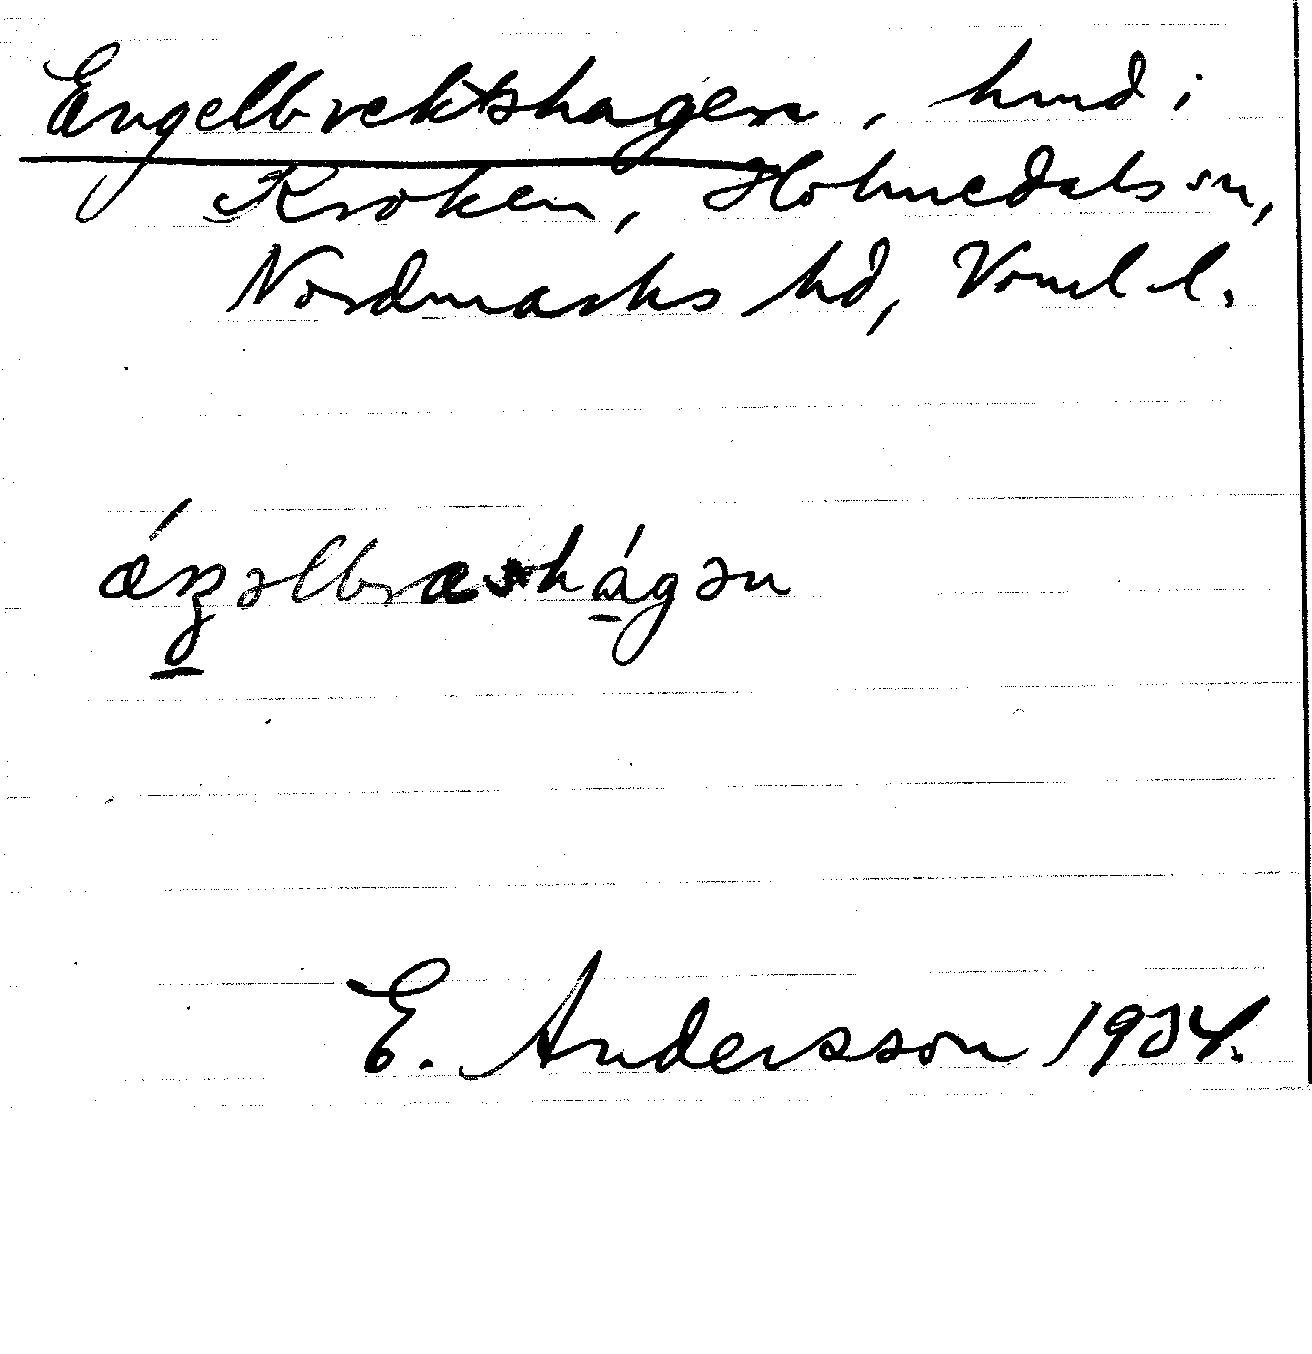 Engelbrektshagen, hmd i
Kroken, Holmedals sn,
Nordmarks hd, Vrml l.
E. Andersson 1934.